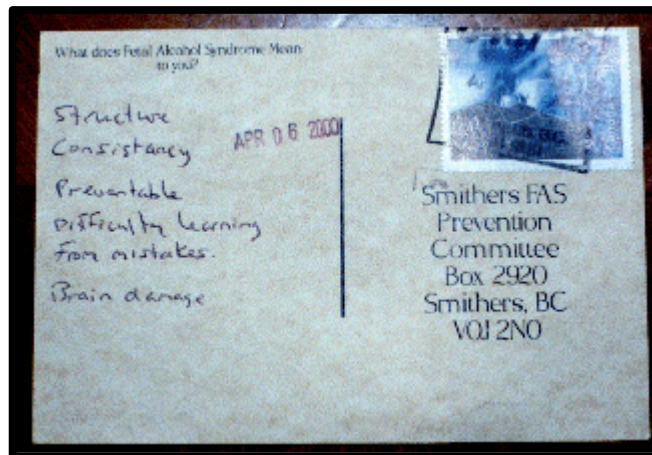 What does Fetal Alcohol Syndrome Mean
to you?
Structure
Consistancy
Preventable
Difficulty learning
from mistakes.
Brain damage
APR 06 2000
Smithers FAS
Prevention
Committee
Box 2920
Smithers, BC
V0J 2N0